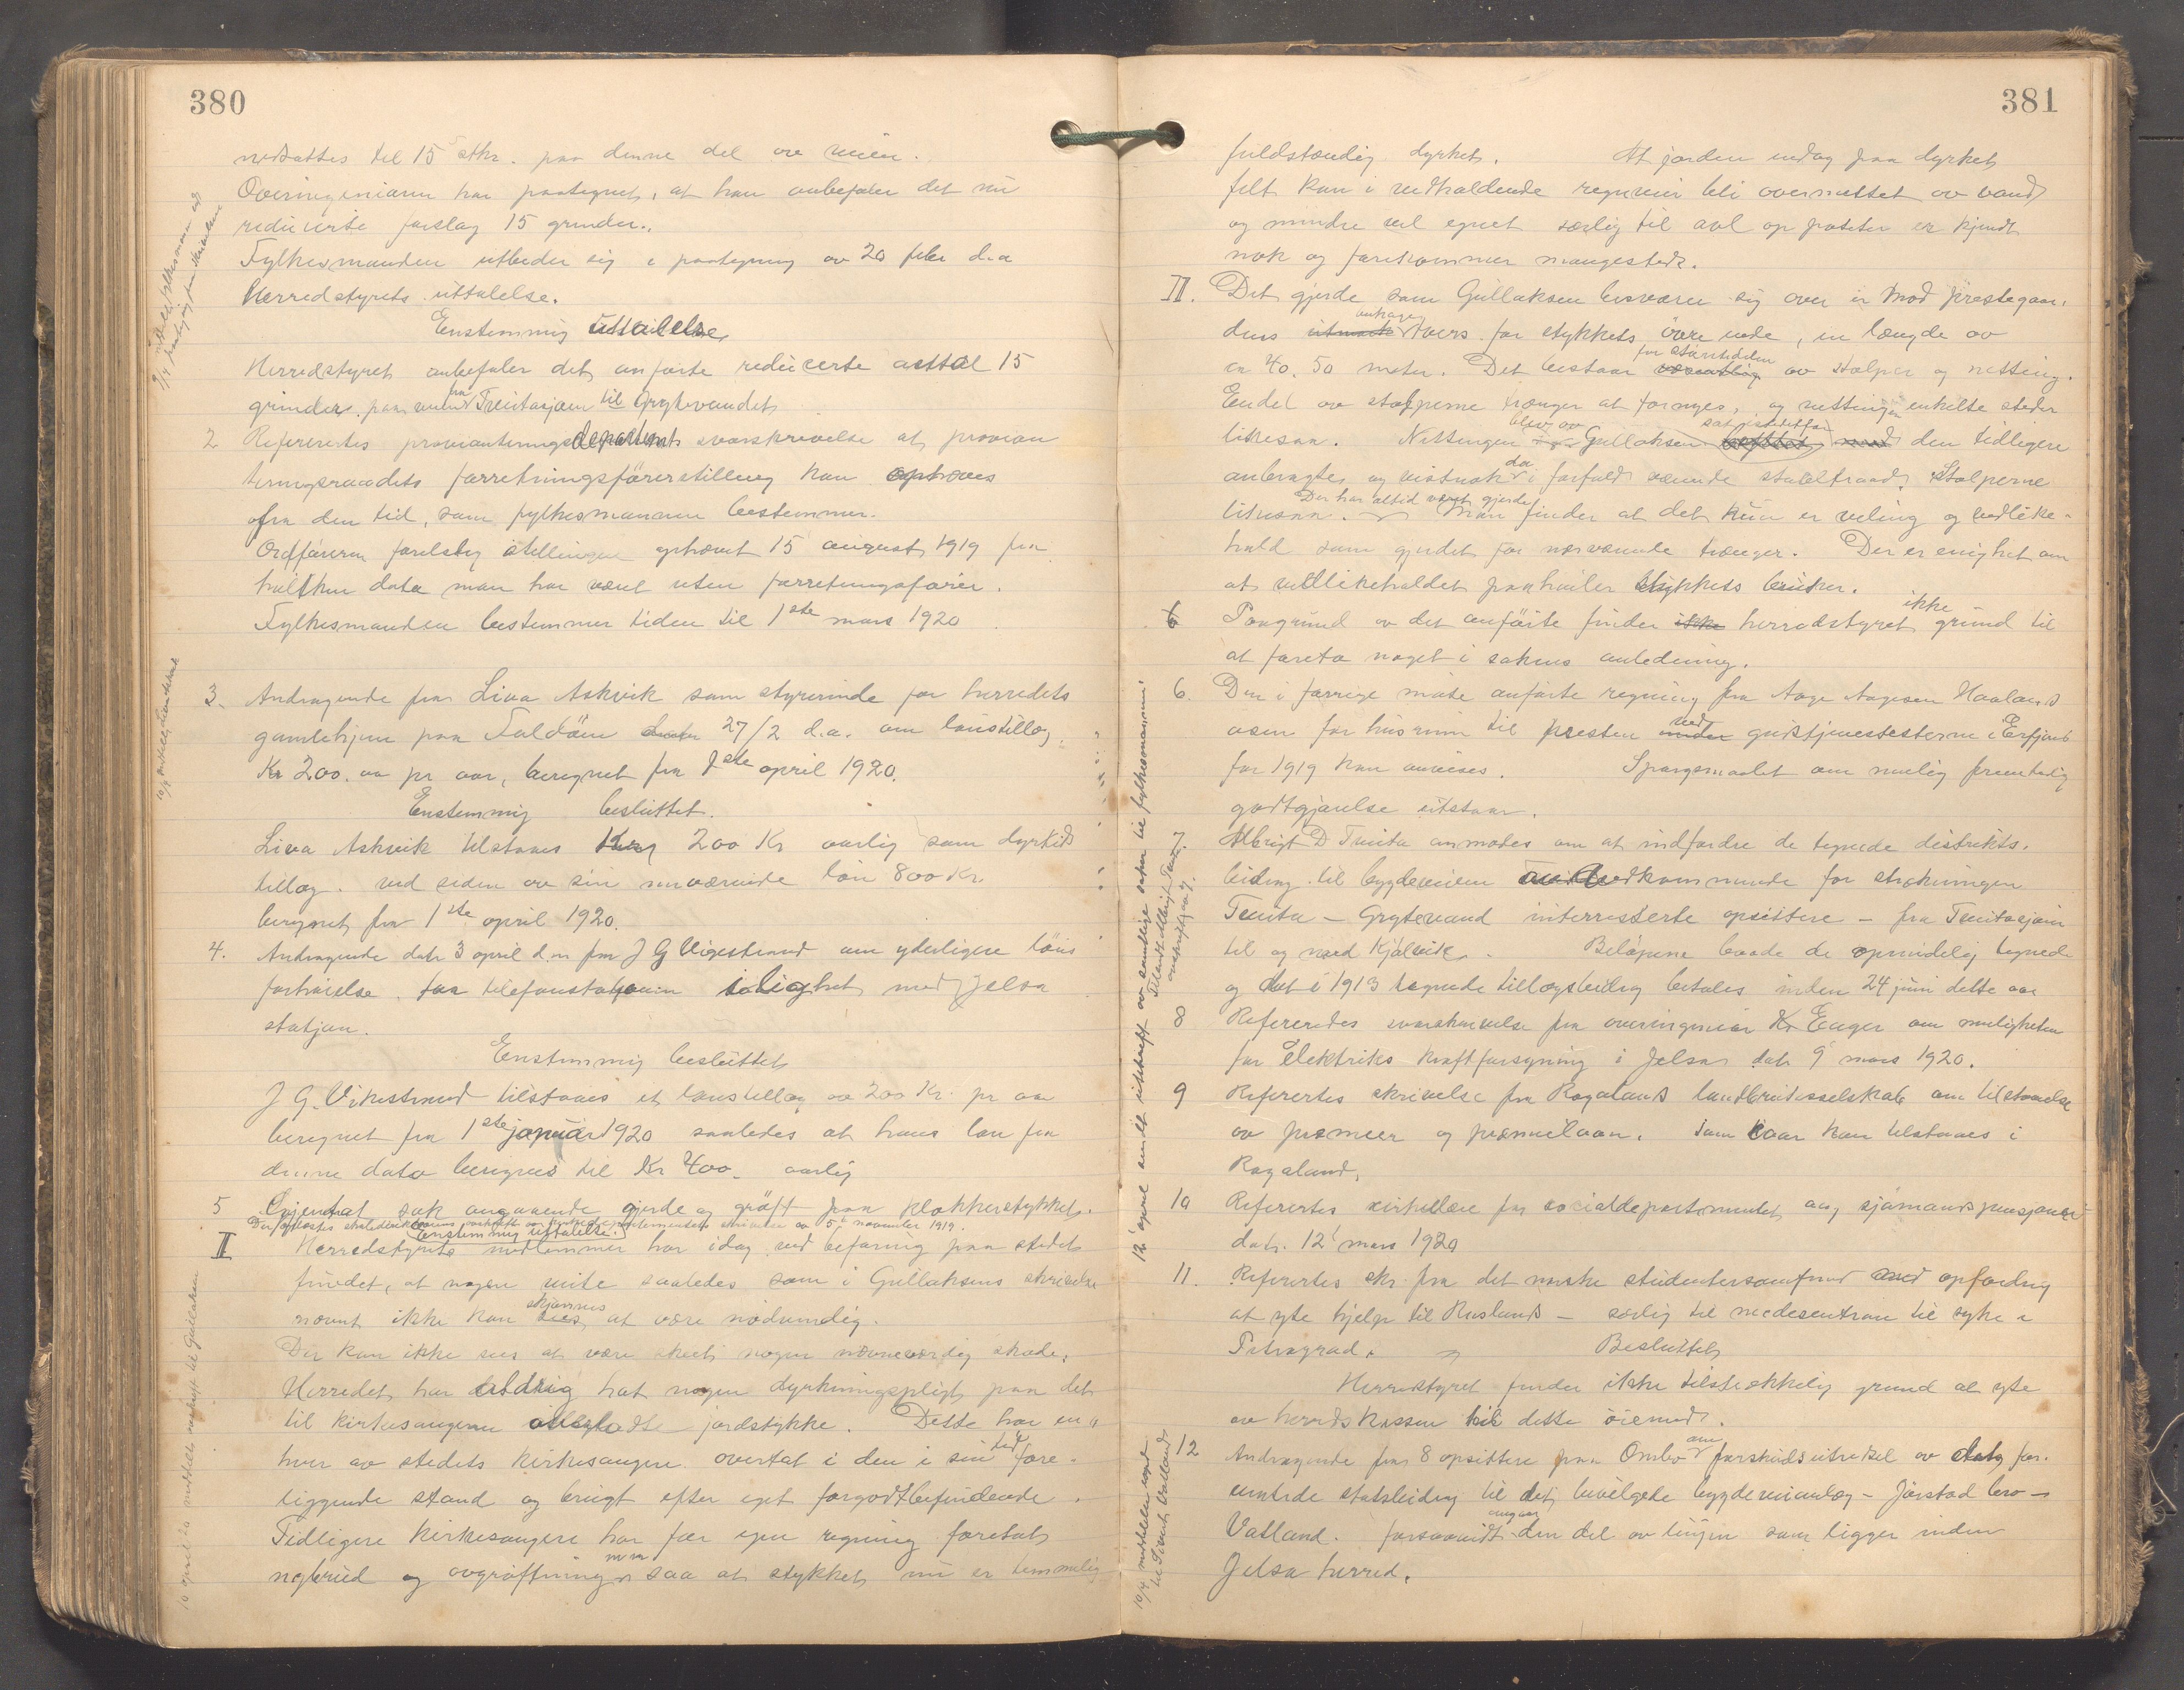 380
nedsættes til 15 stkr. paa denne del av veien.
Overingeniøren har paategnet, at han anbefaler det nu
reducerte forslag 15 grinder.
Fylkesmanden utbeder sig i paategning av 20 febr d.a
Herredstyrets uttalelse.
Enstemmig uttalelse
Herredstyret anbefaler det anførte reducerte antal 15
grinder paa veien fra Tveitasjøen til Grytevandet
2 Refereertes provianteringsdepartements svarskrivelse at provian
teringsraadets forretningsførerstilling kan ophæves
fra den tid, som fylkesmannen bestemmer.
Ordføreren foreslog stillingen ophævet 15 august 1919 fra
hvilken dato man har været uten forretningsfører.
Fylkesmanden bestemmer tiden til 1ste mars 1920
3. Andragende fra Liva Askvik som styrerinde for herredets
gamlehjem paa Foldøen 27/2 d.a. om lønstillæg
Kr 200.00 pr aar, beregnet fra 1ste april 1920.
Enstemmig besluttet.
Liva Askvik tilstaaes 200 Kr aarlig som dyrtids
tillæg ved siden av sin nuværende løn 800 Kr.
beregnet fra 1ste april 1920.
4. Andragende dat 3 april d.a fra J G Vigestrand om yderligere løns
forhøielse for telefonstasjonen i lighet med Jelsa
stasjon.
Enstemmig besluttet
J G. Vikestrand tilstaaes et lønstillæg av 200 Kr. pr aar
beregnet fra 1ste januar 1920 saaledes at hans løn fra
denne dato beregnes til Kr 400.- aarlig
5 sak angaaende gjerde og grøft paa klokkerstykket.
5 november 1919.
Enstemmig uttalelse.
II Herredstyrets medlemmer har idag ved befaring paa stedet
fundet, at nogen veite saaledes som i Gullaksens skrivelse
nævnt ikke kan skjønnes at være nødvendig.
Der kan ikke sees at være skeet nogen nævneværdig skade.
Herredet har aldrig hat nogen dyrkningspligt paa det
til kirkesangeren jordstykke. Dette har en-
hver av stedets kirkesangere overtat i den i sin tid fore-
liggende stand og brugt efter eget forgodtbefindende.
Tidligere kirkesangere har for egen regning foretat
nybrud og avgrøftning m m saa at stykket nu er temmelig
10 april meddelt utskrift til Gullaksen
381
fuldstændig dyrket. At jorden endog paa dyrket
felt kan i vedhaldende regnveir bli overmættet av vand
og mindre vel egnet særlig til avl av poteter er kjendt
nok og forekommer mangesteds.
II. Det gjerde som Gullaksen besværer sig over er mod prestegaar-
dens tvers for stykkets øvre ende, en længde av
ca 40. 50 meter. Det bestaar for størstedelen av stolper og netting.
Endel av stolperne trænger at fornyes, og nettingen enkelte steder
likesaa. Nettingen blev av Gullaksen sat istedetfor den tidligere
anbragte og vistnok da i forfald værende staaltraad. Stolperne
likesaa. Der har altid været gjerde Man finder at det kun er veling og vedlike-
hold som gjerdet for nærværende trænger. Der er enighet om
at vedlikeholdet paahviler stykkets bruker.
Paagrund av det anførte finder herredstyret ikke grund til
at foreta noget i sakens anledning.
6. Den i forrige møte anførte regning fra Aage Aagesen Haaland
aasen for husrum til presten ved gudstjenestesterne i Erfjord
for 1919 kan anvises. Spørgsmaalet om mulig fremtidig
godtgjørelse utstaar.
7. Albrigt D Tveita anmodes om at indfordre de tegnede distrikts-
bidrag til bygdeveien vedkommende for strækningen
Tveita – Grytevand interresserte opsittere – fra Tveitasjøen
til og med Kjølvik. Beløpene baade de oprindelig tegnede
og det i 1913 tegnede tillægsbidrag betales inden 24 juni dette aar
8 Refereredes svarskrivelse fra overingeniør Kr Enger om muligheten
for elektriks kraftforsyning i Jelsa dat 9 mars 1920.
9 Referertes skrivelse fra Rogalands landbruksselskab om tilstaaelse
av præmier og præmielaan. som kan tilstaaes i
Rogaland.
10 Referertes cirkulære fra socialdepartementet ang sjømandspensjoner
dat. 12 mars 1920
11. Referertes skr. fra det norske studentersamfund med opfordring
at yte hjelp til Rusland – særlig til medesentran til syke i
Petrograd. Besluttet
Herredstyret finder ikke tilstrækkelig grund at yte
av herredskassen til dette øiemed.
12 Andragende fra 8 opsittere paa Ombo om forskudsutredsel av
statsbidrag til det bevilgede bygdeveianlæg – Jørstad bro –
Vatland. forsaavidt angaar den del av linjen som ligger inden
Jelsa herred.
12 april sendt utskrift av samtlige saker til fylkesmannen
Tilendt Albrigt Tveita utskrift sak 7.
10/4 meddelt utskrift til Sivert Vatland